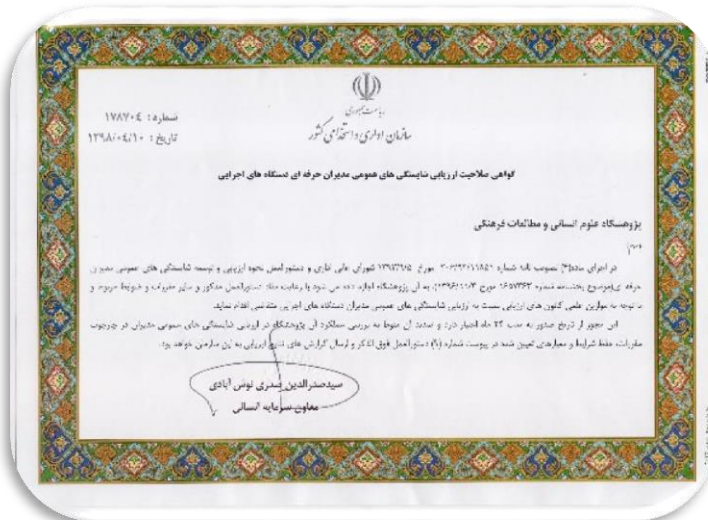 ریاست جمهوری
سازمان اداری و استخدامی کشور
شماره : ۱۷۸۷۰٤
تاریخ : ۱۳۹۸/۰٤/۱۰
گواهی صلاحیت ارزیابی شایستگی های عمومی مدیران حرفه ای دستگاه های اجرایی
پژوهشگاه علوم انسانی و مطالعات فرهنگی
در اجرای ماده تصویب نامه شماره مورخ شورای عالی اداری و دستورالعمل نحوه ارزیابی و توسعه شایستگی های عمومی مدیران
حرفه ای بخشنامه شماره ۱۶۵۷۳۶۳ مورخ به آن پژوهشگاه اجازه داده می شود با رعایت مفاد دستورالعمل مذکور و سایر مقررات و ضوابط مربوط و
با توجه به موازین علمی کانون های ارزیابی نسبت به ارزیابی شایستگی های عمومی مدیران دستگاه های اجرایی متقاضی اقدام نماید.
این مجوز از تاریخ صدور به مدت ۲۴ ماه اعتبار دارد و تمدید آن منوط به بررسی عملکرد آن پژوهشگاه در ارزیابی شایستگی های عمومی مدیران در چارچوب
مقررات، حفظ شرایط و معیارهای تعیین شده در پیوست شماره دستورالعمل فوق الذکر و ارسال گزارش های نتایج ارزیابی به این سازمان خواهد بود.
سیدصدرالدین صدری نوش آبادی
معاون سرمایه انسانی